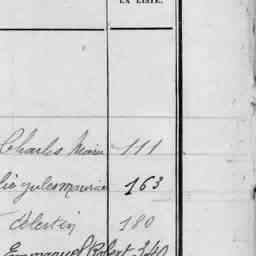 LA LISTE.
Charles Marie 111
Jules Maurice 163
Célestin 180
Emmanuel Robert 340